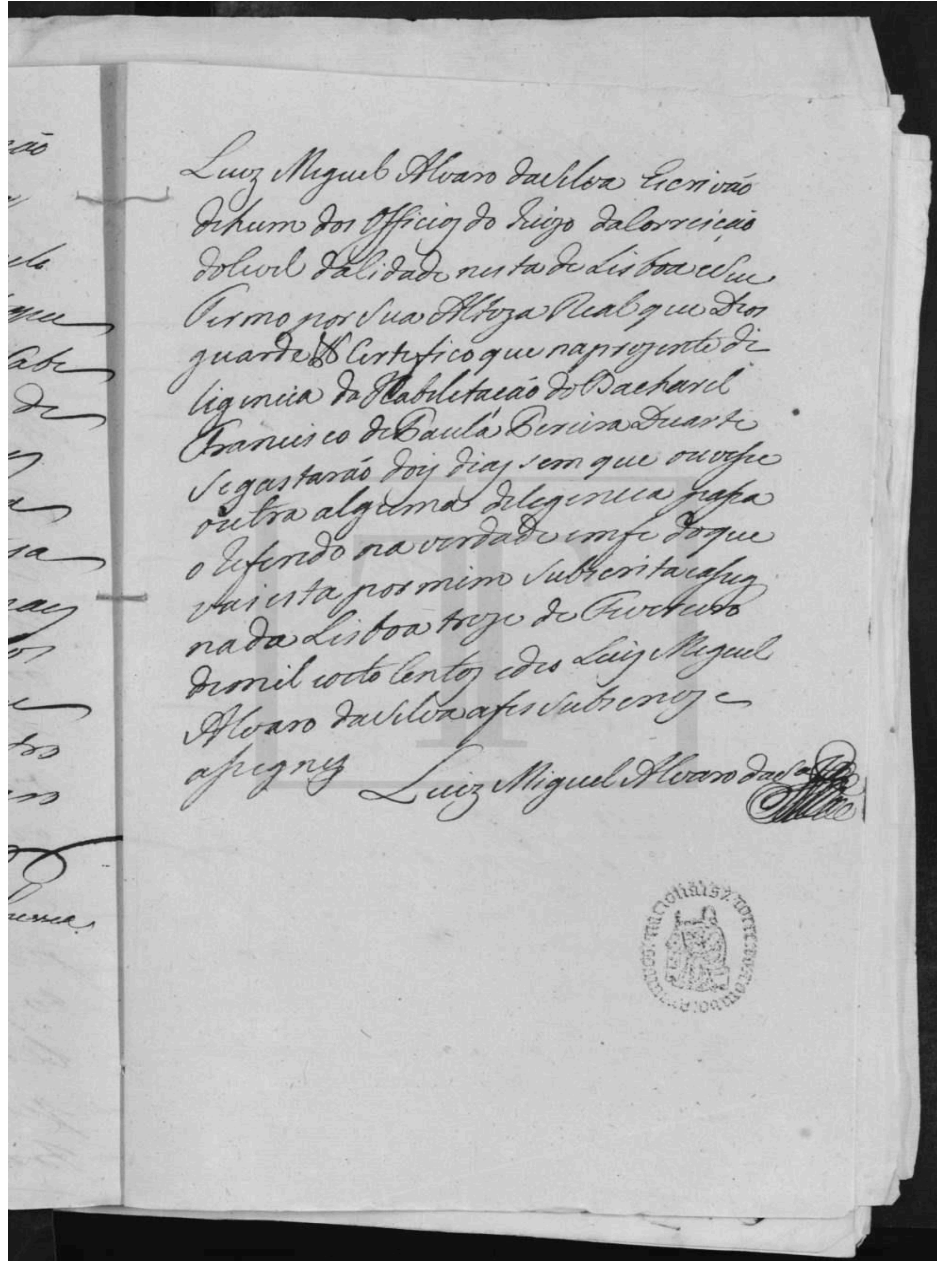 Luiz Miguel Alvaro daSilva Escrivão
dehum dos Officios do Juizo daCorreição
doCivel daCidade nesta de Lisboa eseu
Termo por Sua Alteza Real que Deos
guarde Certefico que naprezente de
ligencia da Habilitacão do Bacharel
Francisco de Paula Pereira Duarte
segastarão dois dias sem que ouvesse
outra alguma deligencia passa
o referido na verdade emfe doque
vai esta por mim subscrita easig
nada Lisboa treze de Fevereiro
demil eoito Centos edes Luiz Miguel
Alvaro daSilva afis subscrevy e
asigney
Luiz Miguel Alvaro daSa
archivos nacionais torre do tombo
ão
elo
que
Cabe
de
sa